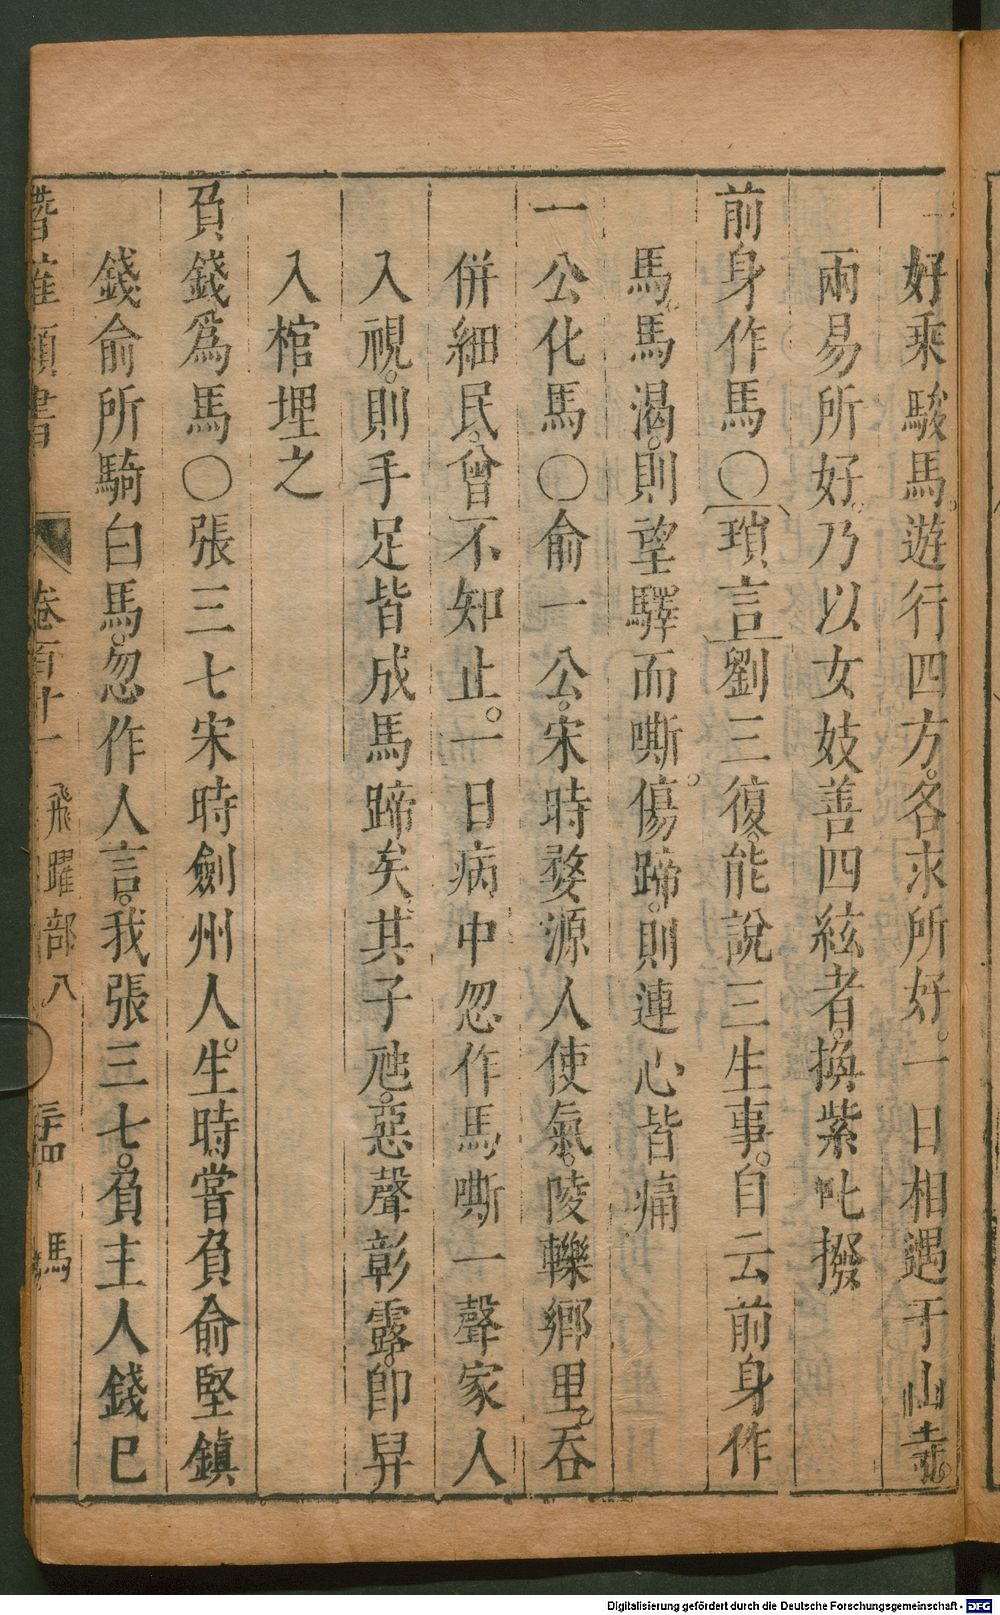 好乘駿馬。遊行四方。各求所好。一日相遇于山寺
兩易所好。乃以女妓善四絃者。換紫叱撥
前身作馬〇瑣言劉三復。能說三生事。自云前身作
馬。馬渴。則望驛而嘶。傷蹄。則連心皆痛
一公化馬〇俞一公。宋時婺源人使氣。陵轢鄉里。吞
併細民。曾不知止。一日病中忽作馬嘶一聲家人
入視。則手足皆成馬蹄矣。其子虺。惡聲彰露。卽舁
入棺埋之
負錢爲馬〇張三七宋時劍州人。生時嘗負俞堅鎮
錢俞所騎白馬。忽作人言。我張三七。負主人錢已
類書 卷百十一 飛躍部八 馬
Digitalisierung gefördert durch die Deutsche Forschungsgemeinschaft - DFG